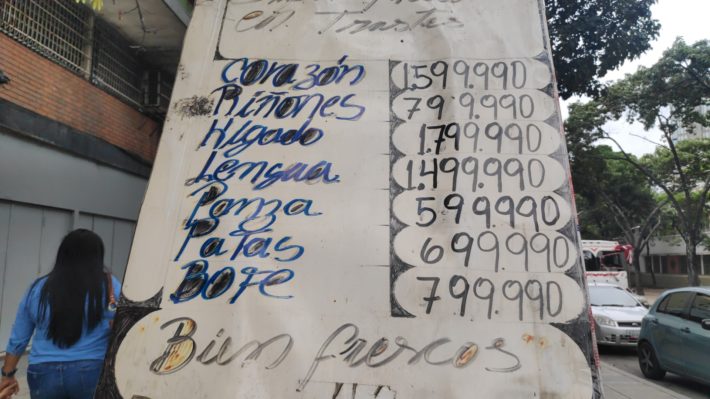 en Trastes
Corazón 1.599.990
Riñones 799.990
Higado 1.799.990
Lengua 1.499.990
Panza 599990
Patas 699.990
BOFe 799.990
Bien frescos